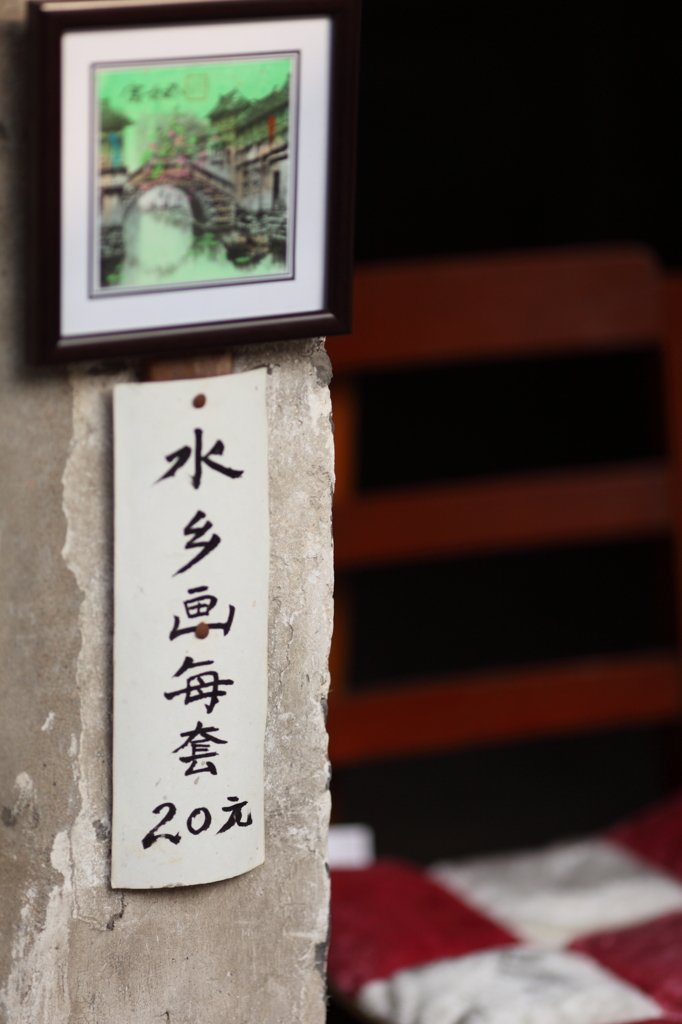 水乡画每套
20元